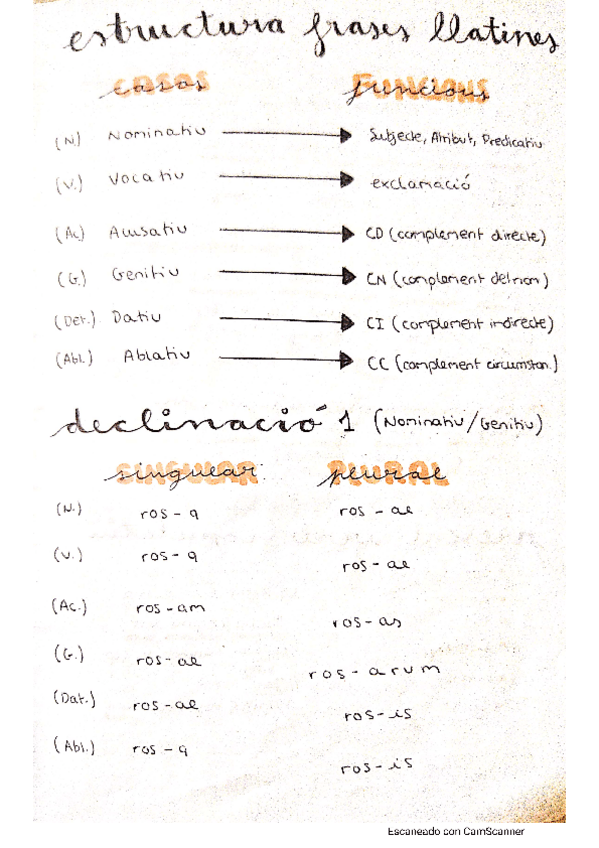 estructura frases llatines
casos FUNCIONS funcions
(N) Nominatiu Subjecte, Atribut, Predicatiu
(V.) Vocatiu exclamació
(Ac) Acusatiu CD (complement directe)
(G.) Genitiu CN (complement del nom)
(Dat.) Datiu CI (complement indirecte)
(Abl.) Ablatiu CC (complement circumstan.)
declinació 1 (Nominatiu/Genitiu)
SINGULAR singular PLURAL plural
(N.) ros - a ros - ae
(V.) ros - a ros - ae
(Ac.) ros - am ros - as
(G.) ros - ae ros - arum
(Dat.) ros - ae ros - is
(Abl.) ros - a ros - is
Escaneado con CamScanner